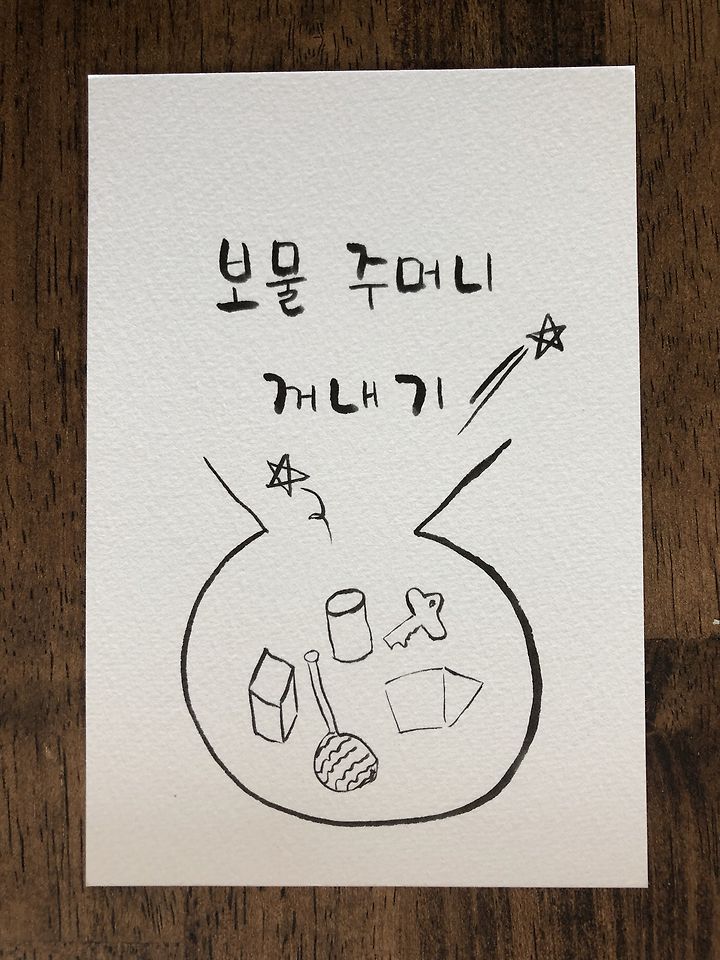 보물 주머니
꺼내기